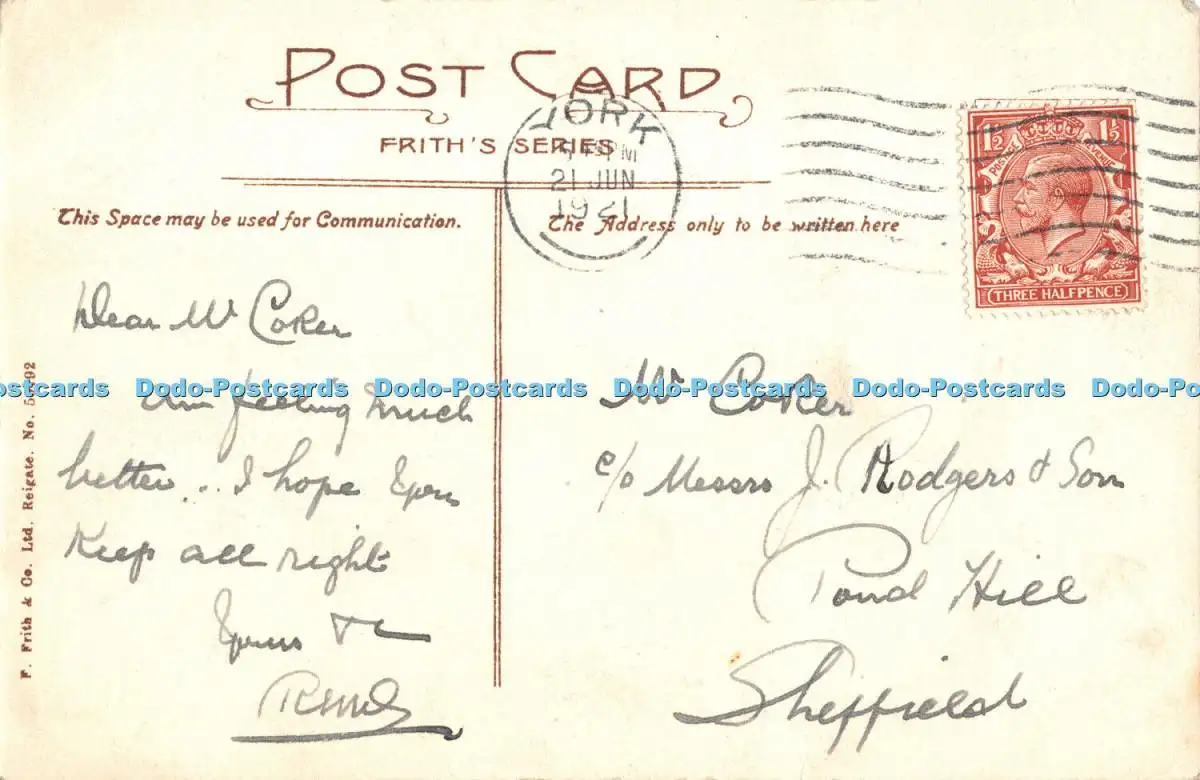 POST CARD
FRITH'S SERIES
YORK
PM
21 JUN
1921
1½ 1½
POSTAGE REVENUE
THREE HALFPENCE
This Space may be used for Communication.
The Address only to be written here
Dear Mr Coker
Am feeling much
better... I hope you
Keep all right
Yours &c
Mr Coker
c/o Messrs J. Rodgers & Son
Pond Hill
Sheffield
F. Frith & Co. Ltd. Reigate. No.
Dodo-Postcards Dodo-Postcards Dodo-Postcards Dodo-Postcards Dodo-Postcards